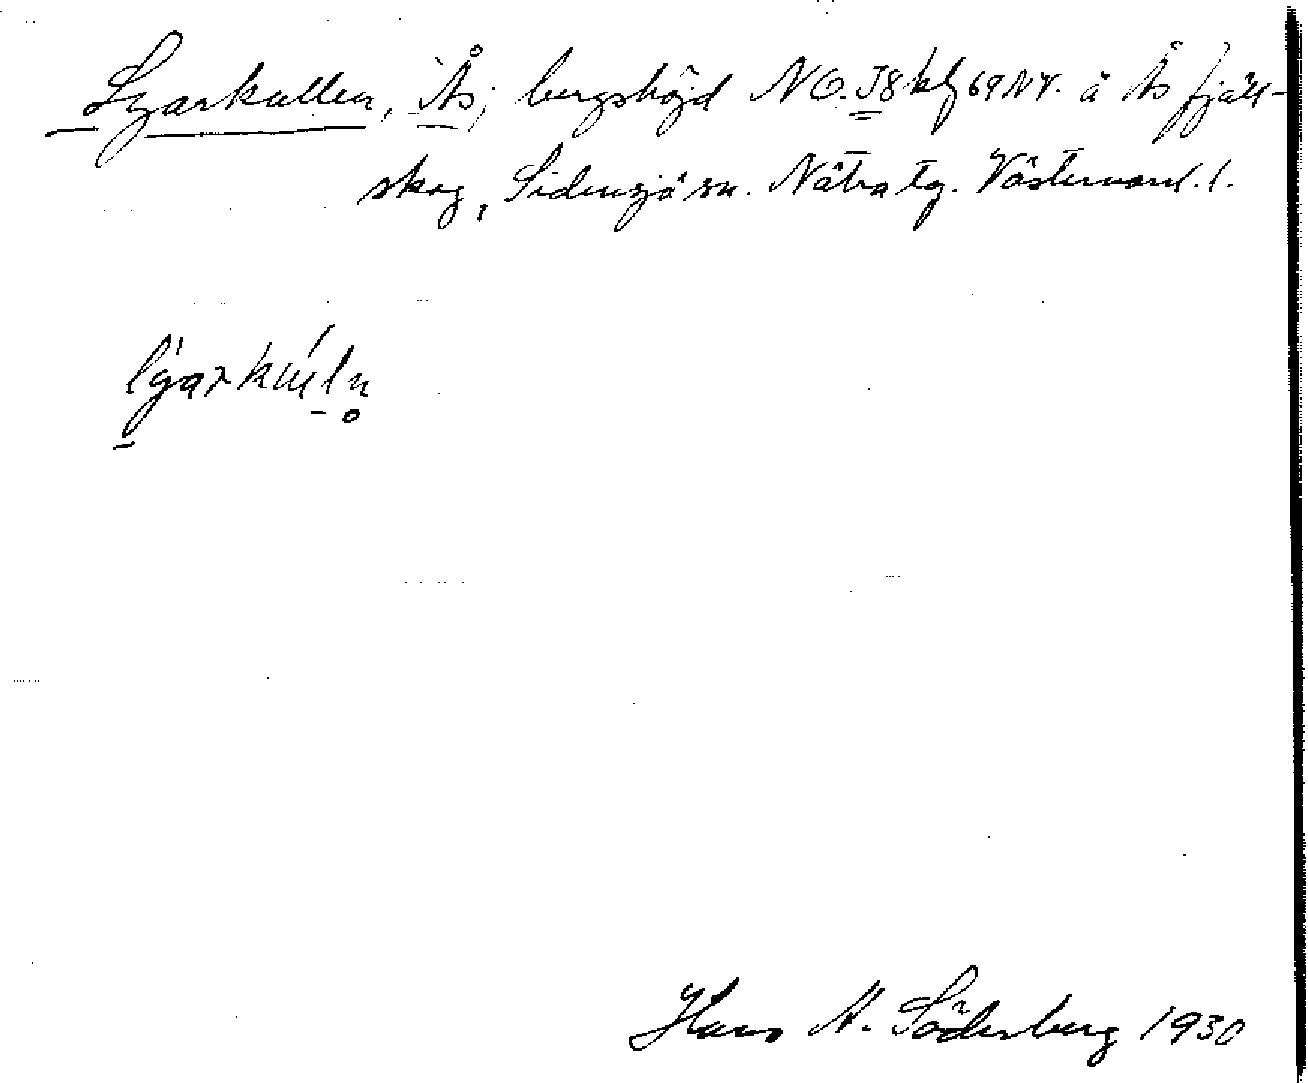 Lyarkullen, Ås; bergshöjd NO. J8 kbf 69NY. å Ås fjäll-
skog, Sidensjö sn. Nätra tg. Västernorrl. l.
Hans A. Söderberg 1930